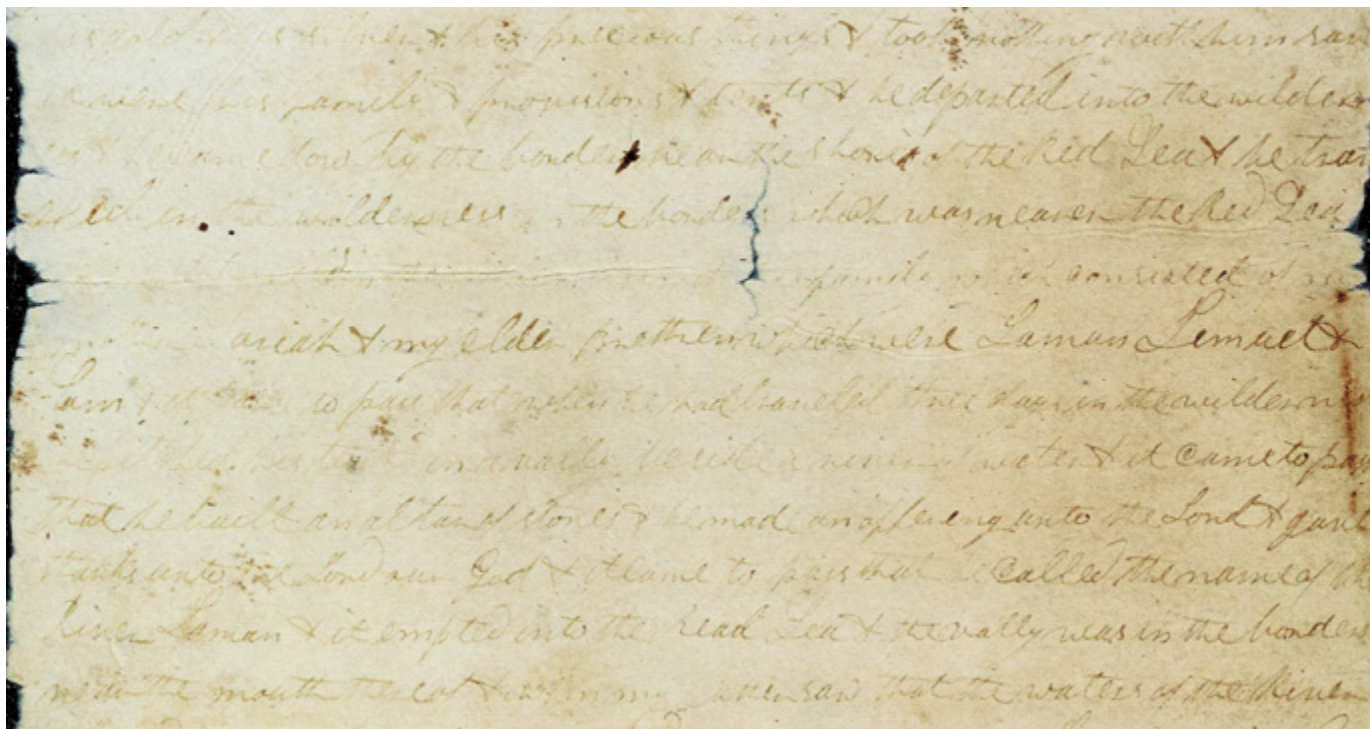 gold & his silver & his precious things & took nothing with him save
it were his family & provisions & tents & he departed into the wilder
& he came down by the borders near the shore of the Red Sea & he trav
in the wilderness in the borders which was nearer the Red Sea
family which consisted of my
ariah & my elder brethren which were Laman Lemuel &
Sam & it came to pass that when he had traveled three days in the wilderness
he pitched his tent in a vally beside a river of water & it came to pass
that he built an altar of stones & he mad an offering unto the Lord & gave
thanks unto the Lord our God & it came to pass that he called the name of the
River Laman & it emptied into the head Sea & the vally was in the borders
the mouth thereof & when my saw that the waters of the River